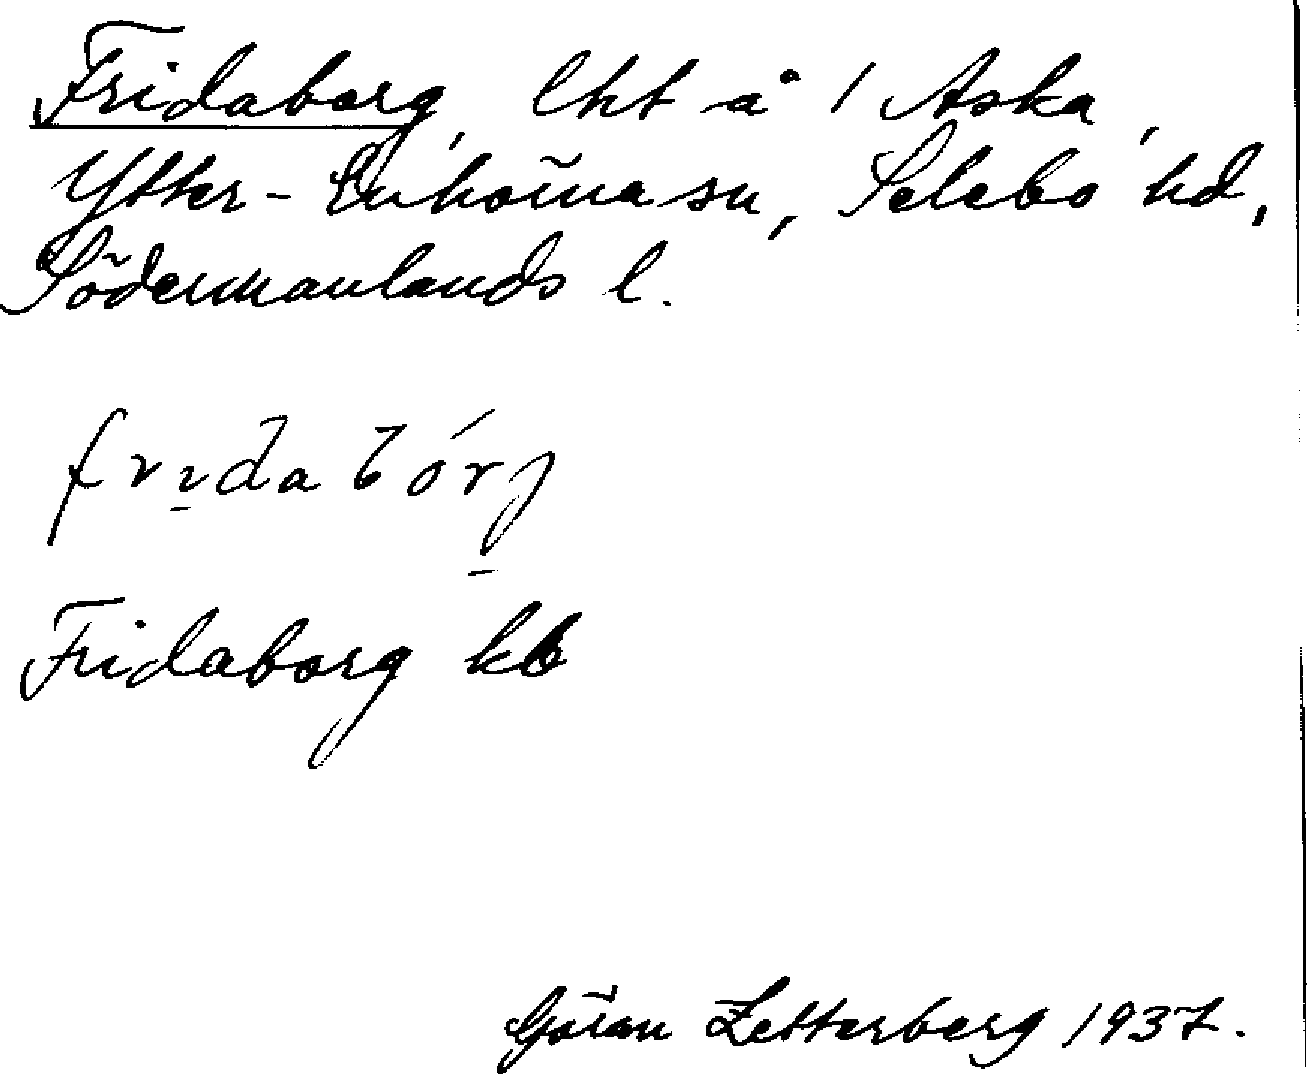 Fridaborg, lht å 1 Aska,
Ytter-Enhörna sn, Selebo hd,
Södermanlands l.
fridabórj
Fridaborg kb
Göran Zetterberg 1937.